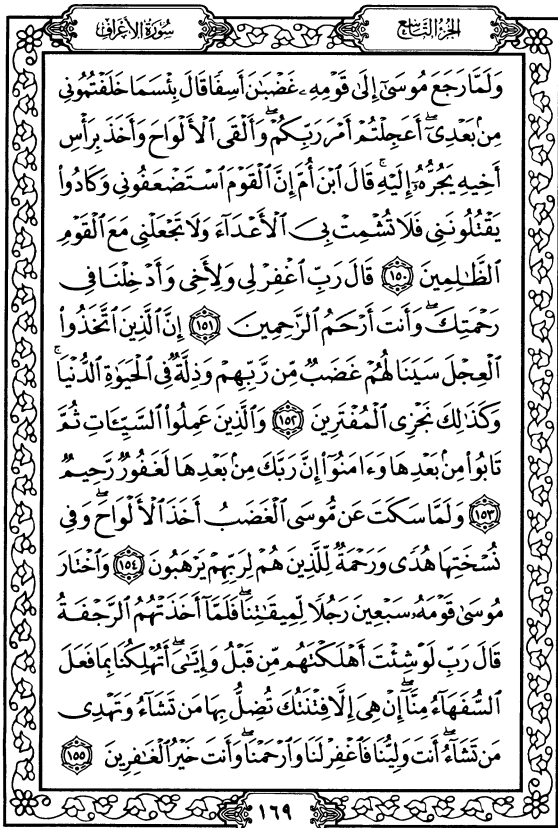 الجزء التاسع
سورة الأعراف
وَلَمَّا رَجَعَ مُوسَىٰٓ إِلَىٰ قَوْمِهِۦ غَضْبَٰنَ أَسِفًا قَالَ بِئْسَمَا خَلَفْتُمُونِي
مِنۢ بَعْدِيٓ ۖ أَعَجِلْتُمْ أَمْرَ رَبِّكُمْ ۖ وَأَلْقَى ٱلْأَلْوَاحَ وَأَخَذَ بِرَأْسِ
أَخِيهِ يَجُرُّهُۥٓ إِلَيْهِ ۚ قَالَ ٱبْنَ أُمَّ إِنَّ ٱلْقَوْمَ ٱسْتَضْعَفُونِي وَكَادُوا۟
يَقْتُلُونَنِي فَلَا تُشْمِتْ بِيَ ٱلْأَعْدَآءَ وَلَا تَجْعَلْنِي مَعَ ٱلْقَوْمِ
ٱلظَّٰلِمِينَ ١٥٠ قَالَ رَبِّ ٱغْفِرْ لِي وَلِأَخِي وَأَدْخِلْنَا فِي
رَحْمَتِكَ ۖ وَأَنتَ أَرْحَمُ ٱلرَّٰحِمِينَ ١٥١ إِنَّ ٱلَّذِينَ ٱتَّخَذُوا۟
ٱلْعِجْلَ سَيَنَالُهُمْ غَضَبٌ مِّن رَّبِّهِمْ وَذِلَّةٌ فِي ٱلْحَيَوٰةِ ٱلدُّنْيَا ۚ
وَكَذَٰلِكَ نَجْزِي ٱلْمُفْتَرِينَ ١٥٢ وَٱلَّذِينَ عَمِلُوا۟ ٱلسَّيِّـَٔاتِ ثُمَّ
تَابُوا۟ مِنۢ بَعْدِهَا وَءَامَنُوٓا۟ إِنَّ رَبَّكَ مِنۢ بَعْدِهَا لَغَفُورٌ رَّحِيمٌ
١٥٣ وَلَمَّا سَكَتَ عَن مُّوسَى ٱلْغَضَبُ أَخَذَ ٱلْأَلْوَاحَ ۖ وَفِي
نُسْخَتِهَا هُدًى وَرَحْمَةٌ لِّلَّذِينَ هُمْ لِرَبِّهِمْ يَرْهَبُونَ ١٥٤ وَٱخْتَارَ
مُوسَىٰ قَوْمَهُۥ سَبْعِينَ رَجُلًا لِّمِيقَٰتِنَا ۖ فَلَمَّآ أَخَذَتْهُمُ ٱلرَّجْفَةُ
قَالَ رَبِّ لَوْ شِئْتَ أَهْلَكْتَهُم مِّن قَبْلُ وَإِيَّٰيَ ۖ أَتُهْلِكُنَا بِمَا فَعَلَ
ٱلسُّفَهَآءُ مِنَّآ ۖ إِنْ هِيَ إِلَّا فِتْنَتُكَ تُضِلُّ بِهَا مَن تَشَآءُ وَتَهْدِي
مَن تَشَآءُ ۖ أَنتَ وَلِيُّنَا فَٱغْفِرْ لَنَا وَٱرْحَمْنَا ۖ وَأَنتَ خَيْرُ ٱلْغَٰفِرِينَ ١٥٥
١٦٩